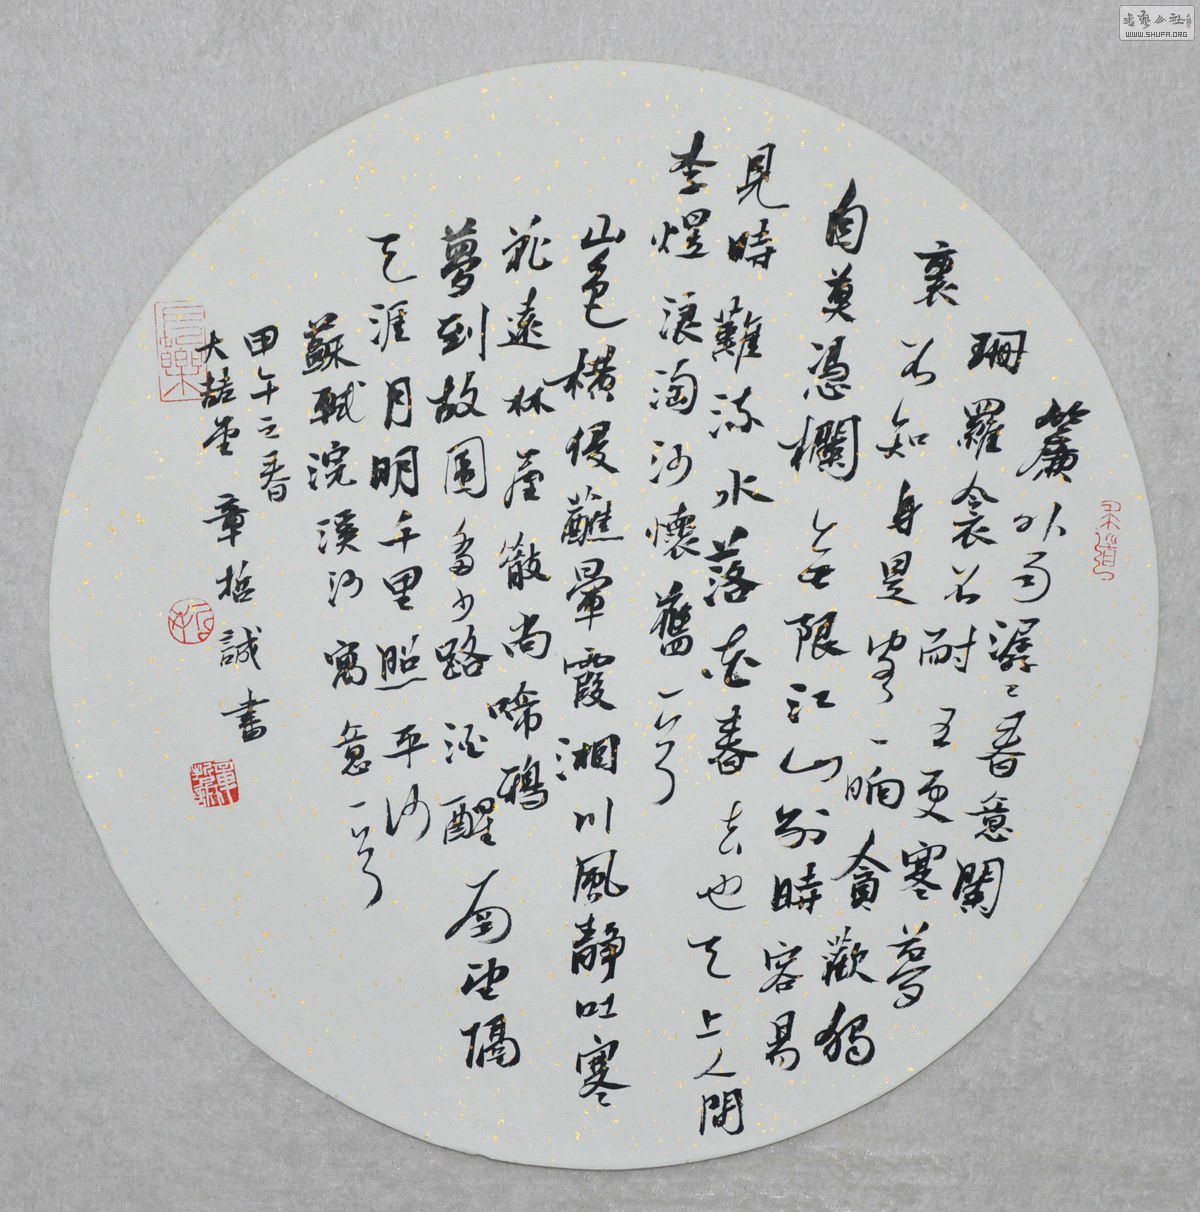 簾外雨潺々春意闌
珊羅衾不耐五更寒夢
裏不知身是客一晌貪歡獨
自莫憑欄無限江山別時容易
見時難流水落花春去也天上人間
李煜浪淘沙懷舊一首
山色橫侵蘸暈霞湘川風靜吐寒
花遠林屋散尚啼鴉
夢到故園多少路酒醒南望隔
天涯月明千里照平沙
蘇軾浣溪沙寓意一首
甲午之春
大喆堂章哲誠書
長樂
書藝公社
WWW.SHUFA.ORG